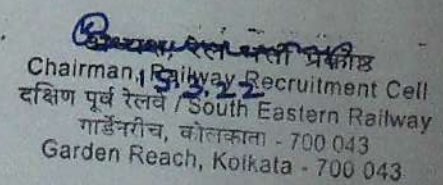 अध्यक्ष, रेल भर्ती प्रकोष्ठ
Chairman, Railway Recruitment Cell
15.3.22
दक्षिण पूर्व रेलवे / South Eastern Railway
गार्डेनरीच, कोलकाता - 700 043
Garden Reach, Kolkata - 700 043